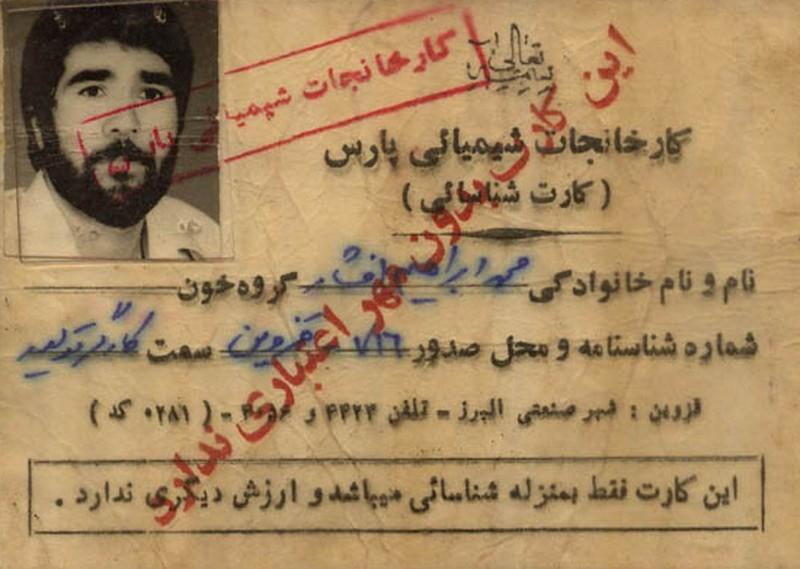 بسمه تعالی
کارخانجات شیمیائی پارس
کارخانجات شیمیائی پارس
(کارت شناسائی)
نام و نام خانوادگی محمد ابراهیم افشار گروه خون
شماره شناسنامه و محل صدور ۷۱۶ قزوین سمت کارگر تولید
قزوین : شهر صنعتی البرز - تلفن ۴۴۲۳ و - ( ۰۲۸۱ کد )
این کارت فقط بمنزله شناسائی میباشد و ارزش دیگری ندارد .
این کارت بدون مهر اعتباری ندارد